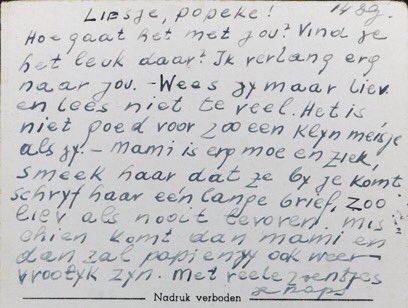 Liesje, popeke! 14 Bg.
Hoe gaat het met jou? Vind je
het leuk daar? Ik verlang erg
naar jou. - Wees jy maar liev
en lees niet te veel. Het is
niet goed voor zoo een klyn meisje
als jy! - Mami is erg moe en ziek,
smeek haar dat ze by je komt
schryf haar een lange brief, zoo
liev als nooit tevoren. mis
chien komt dan mami en
dan zal papi en jy ook weer
vrootyk zyn. Met veele zoentjes
je paps
Nadruk verboden